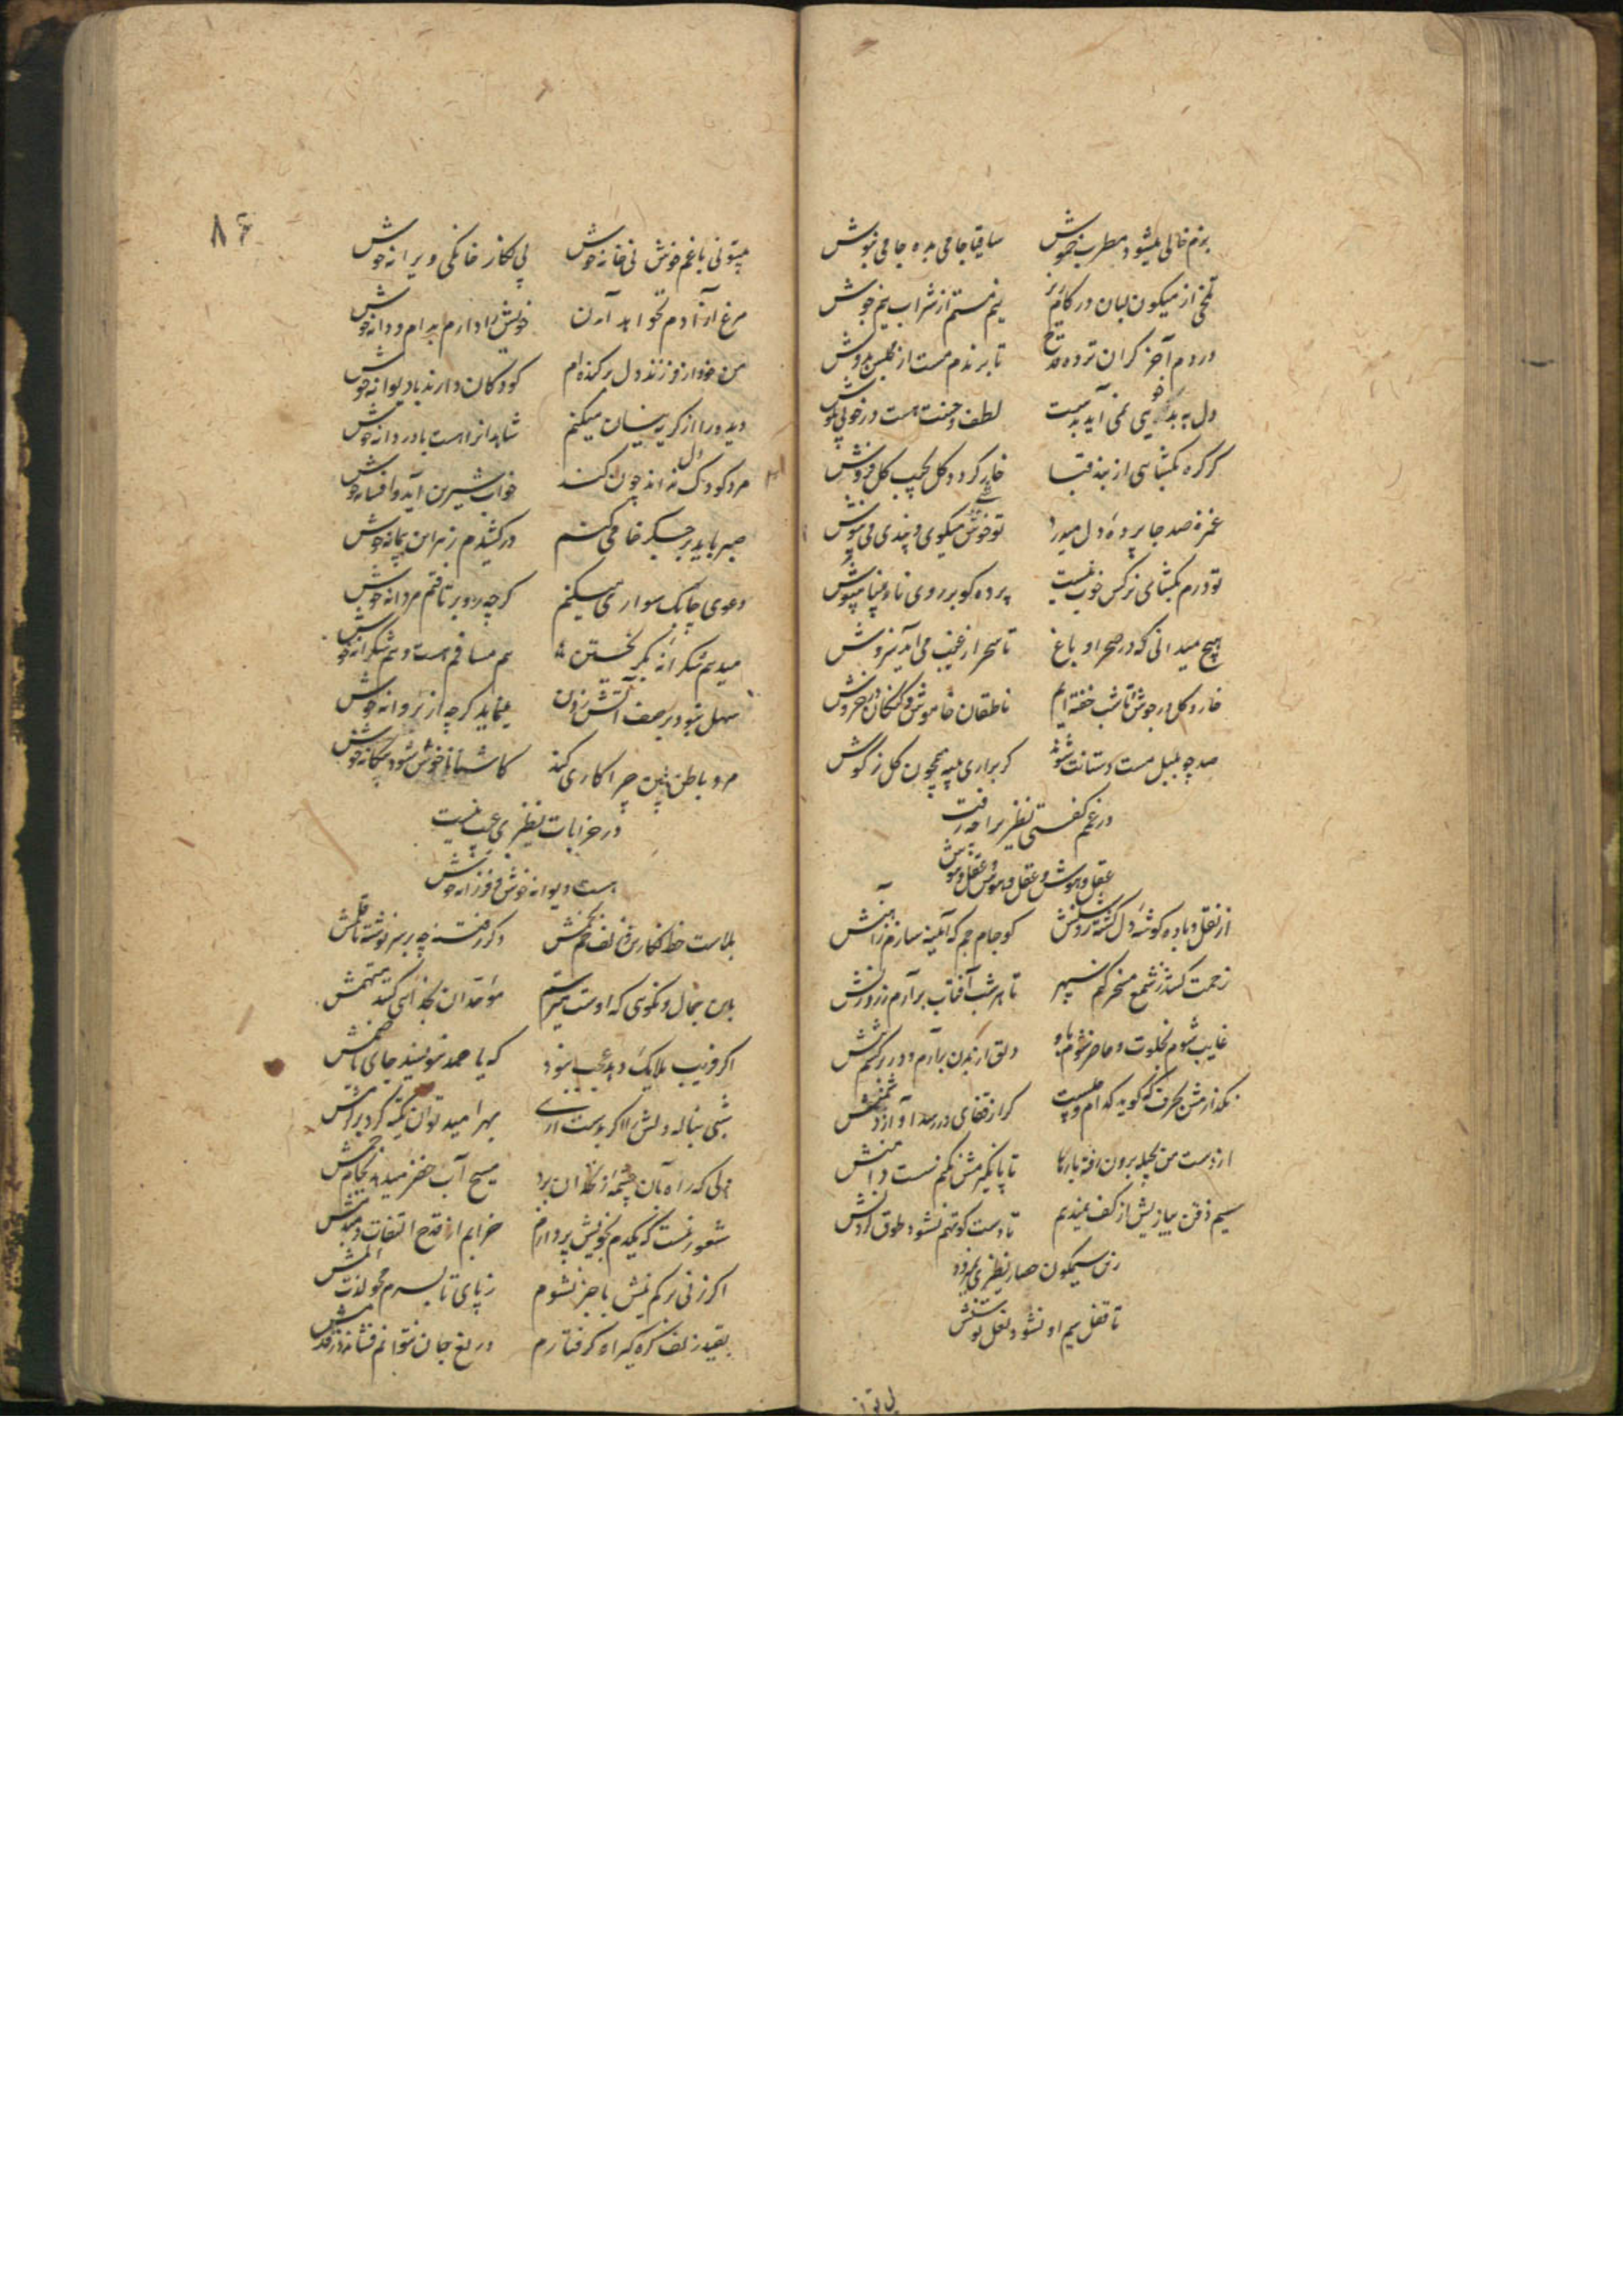 بزم خالی میشود مطرب خموش ساقیا جامی بده جامی بنوش
تلخی از میکون لبان در کام ریز نیم مستم از شراب نیم جوش
در دم آخر گران تر ده قدح تا برندم مست از مجلس بدوش
دل به بد خویی نمی آید بدست لطف و حسنت هست در خوبی بکوش
گر گره بگشایی از بند قبا خار گردد گل بجیب گل فروش
غمزه صد جا پرده دل میدرد تو خوش میگوی و پندی می نیوش
تو درم بگشای نرگس خوب نیست پرده گو بر روی نازیبا بپوش
هیچ میدانی که در صحرا و باغ تا سحر از غیب می آید سروش
خار و گل در جوش تا شب خفته ایم ناطقان خاموش و گنگان در خروش
صد چو بلبل مست دستانت شوند گر براری پنبه همچون گل ز گوش
در غم گفتی نظیری را چه رفت
عقل و هوش و عقل و هوش و عقل و هوش
از نقل و باده گوشه دل گشته گلشنش کو جام جم که آینه سازم ز آهنش
زحمت کشد ز شمع مسخر کنم سپهر تا هر شب آفتاب برآرم ز روزنش
غایب شوم بخلوت و حاضر شوم باو دلق از بدن برآرم و در برکشم تنش
نگذارمش بحرف که گوید کدام و چیست گر از قفای در رسد آواز دشمنش
از دست من بحیله برون رفته بارها تا پا نگیرمش نکنم سست دامنش
سیم ذقن ببازیش از کف نمیدهم تا دست کوتهم نشود طوق گردنش
زین سیمگون حصار نظیری نبرده
تا قفل سیم او نشود نعل توسنش
میتونی با غم خوش نی خانه خوش بی نگار خانگی ویرانه خوش
مرغ آزادم نخواهد آمدن خویش را دارم بدام و دانه خوش
من خود از فرزند دل برکنده ام کودکان دارند با دیوانه خوش
دیده را از گریه نیسان میکنم شاهدانرا هست با دردانه خوش
مرد کودک دل نه اند چون کند خواب شیرین آید و افسانه خوش
صبر باید بر جگر خامی کنم درکشیدم زهر این پیمانه خوش
دعوی چابک سواری میکنم گرچه رو برتافتم مردانه خوش
میدهم شکرانه بگریختن هم مسافر هست و هم شکرانه خوش
سهل نبود بر صف آتش زدن مینماید گرچه از پروانه خوش
مرد باطن بین چرا کاری کند کاشنا ناخوش شود بیگانه خوش
در خرابات نظیری عیب نیست
هست دیوانه خوش و فرزانه خوش
بلاست خط نگارین و زلف خم بخمش دگر رفته چه بر سر نوشته تا قلمش
بدین جمال و نکویی که اوست میترسم موحدان بخدایی کنند متهمش
اگر فریب ملایک دهد عجب نبود که با صمد بنویسند جای با صنمش
شبی بناله دلش را اگر بدست آری بهر امید توان تکیه کرد بر کرمش
دلی که راه بآن چشمه زنخدان برد مسیح آب خضر میدهد بجام جمش
شعور نیست که یکدم بخویش پردازم خرابم از قدح التفات دمبدمش
اگر زنی بر گم نیش با خبر نشوم ز پای تا بسرم محو لذت المش
بقید زلف گره گیر او گرفتارم دریغ جان نتوانم فشاند در قدمش